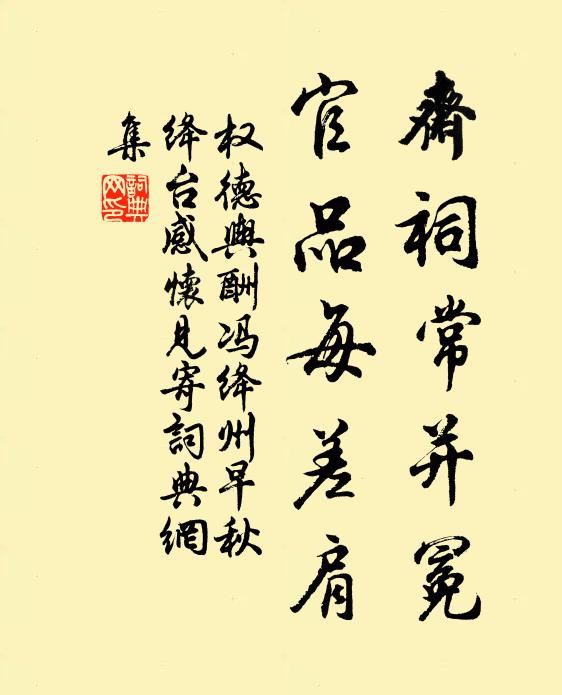 齋祠常并冕
官品每差肩
权德輿酬冯绛州早秋
绛台感懷見寄詞典網
集
詞典
网印